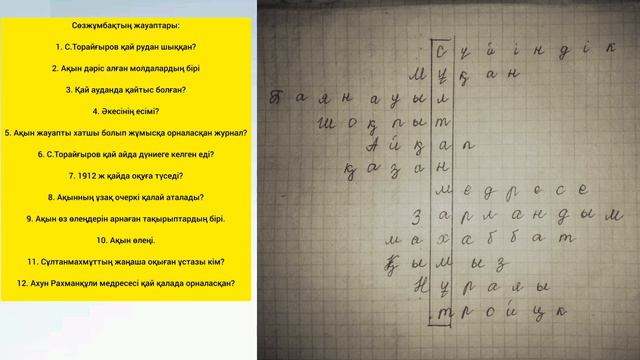 Сөзжұмбақтың жауаптары:
1. С.Торайғыров қай рудан шыққан?
2. Ақын дәріс алған молдалардың бірі
3. Қай ауданда қайтыс болған?
4. Әкесінің есімі?
5. Ақын жауапты хатшы болып жұмысқа орналасқан журнал?
6. С.Торайғыров қай айда дүниеге келген еді?
7. 1912 ж қайда оқуға түседі?
8. Ақынның ұзақ очеркі қалай аталады?
9. Ақын өз өлеңдерін арнаған тақырыптардың бірі.
10. Ақын өлеңі.
11. Сұлтанмахмұттың жаңаша оқыған ұстазы кім?
12. Ахун Рахманқули медресесі қай қалада орналасқан?
Сүйіндік
Мұқан
Баянауыл
Шоқпыт
Айқап
қазан
медресе
Зарландым
махаббат
Қымыз
Нұралы
тройцк